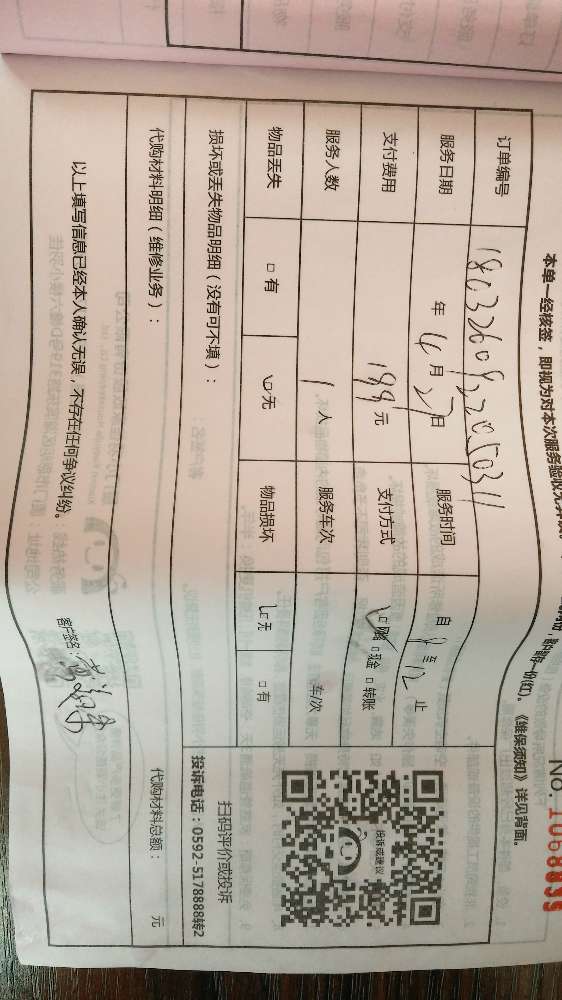 No. 1068839
本单一经核签，即视为对本次服务验收无异议。
《维保须知》详见背面。
订单编号 1803260922050311
服务日期 年 4月27日 服务时间 自 9 至 12 止
支付费用 199 元 支付方式 ☑网络 □现金 □转账
服务人数 1 人 服务车次 车/次
物品丢失 □有 ☑无 物品损坏 ☑无 □有
扫码评价或投诉
投诉电话：0592-5178888转2
损坏或丢失物品明细（没有可不填）：
代购材料明细（维修业务）： 代购材料总额： 元
以上填写信息已经本人确认无误，不存在任何争议纠纷。 客户签名：